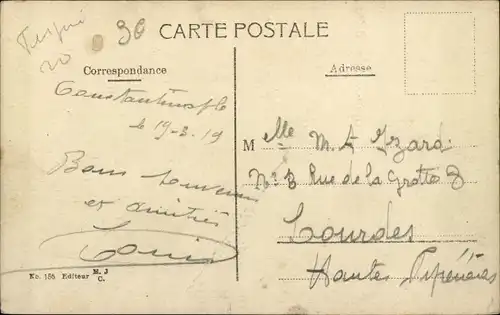 30
CARTE POSTALE
Correspondance
Adresse
Constantinople
le 19-3.19
Bons souvenirs
et amitiés
Louis
Melle M. A Izard
No B Rue de la Grotte 8
Lourdes
Hautes Pyrénées
No. 156 Editeur M. J C.